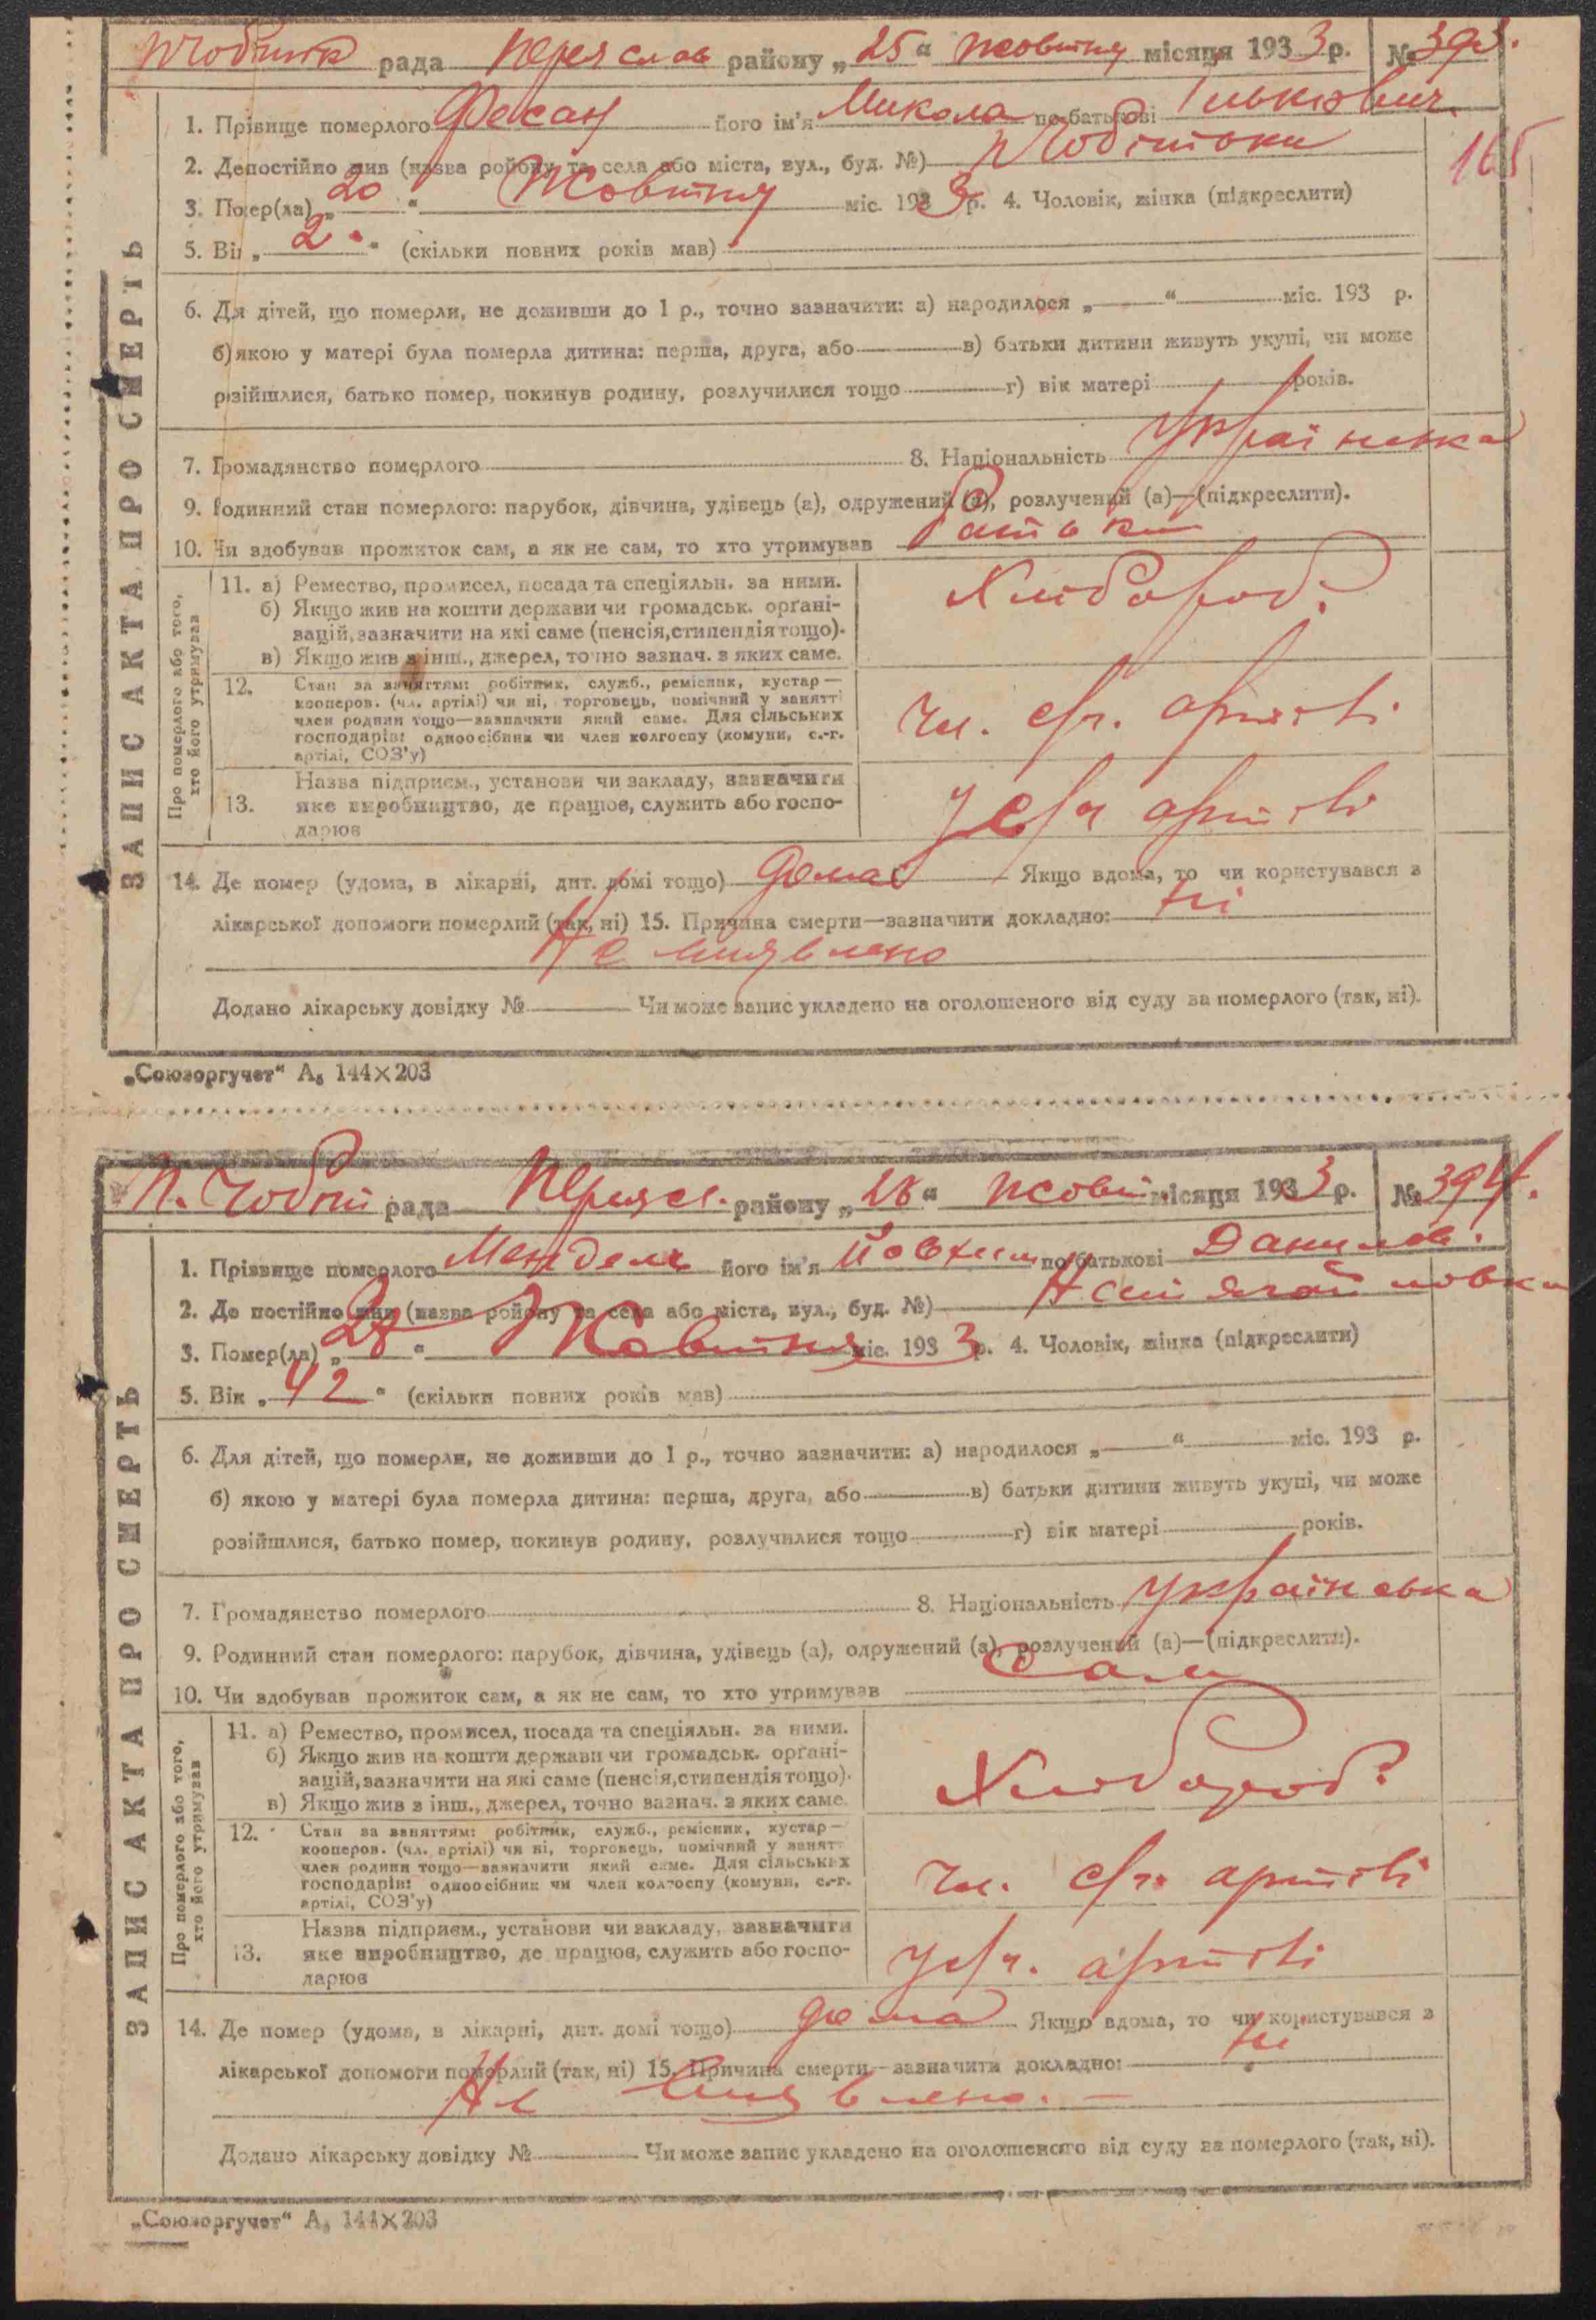 рада Переяслав району „25“ жовтня місяця 1933 р. № 393.
1. Прізвище померлого Фесан його ім'я Микола по батькові Ількович
2. Де постійно жив (назва ройону та села або міста, вул., буд. №)
3. Помер(ла) „20“ Жовтня міс. 1933 р. 4. Чоловік, жінка (підкреслити)
165
5. Вік „2“ (скільки повних років мав)
6. Для дітей, що померли, не доживши до 1 р., точно зазначити: а) народилося „ “ міс. 193 р.
б) якою у матері була померла дитина: перша, друга, або в) батьки дитини живуть укупі, чи може
розійшлися, батько помер, покинув родину, розлучилися тощо г) вік матері років.
7. Громадянство померлого 8. Національність Українська
9. Родинний стан померлого: парубок, дівчина, удівець (а), одружений (а), розлучений (а)—(підкреслити).
10. Чи здобував прожиток сам, а як не сам, то хто утримував Батьки
ЗАПИС АКТА ПРО СМЕРТЬ
Про померлого або того, хто його утримував
11. а) Ремество, промисел, посада та спеціяльн. за ними.
б) Якщо жив на кошти держави чи громадськ. орґані-
зацій, зазначити на які саме (пенсія, стипендія тощо).
в) Якщо жив з інш., джерел, точно зазнач. з яких саме.
Хлібороб.
12. Стан за заняттям: робітник, служб., ремісник, кустар—
кооперов. (чл. артілі) чи ні, торговець, помічний у занятті
член родини тощо—зазначити який саме. Для сільських
господарів: одноосібник чи член колгоспу (комуни, с.-г.
артілі, СОЗ'у)
Чл. с/г. артілі
13. Назва підприєм., установи чи закладу, зазначити
яке виробництво, де працює, служить або госпо-
дарює
У с/г артілі
14. Де помер (удома, в лікарні, дит. домі тощо) дома Якщо вдома, то чи користувався з
лікарської допомоги померлий (так, ні) 15. Причина смерти—зазначити докладно: ні
Не виявлено
Додано лікарську довідку № Чи може запис укладено на оголошеного від суду за померлого (так, ні).
„Союзоргучет“ А₅ 144×203
П. Чобіт рада Переясл. району „28“ жовт. місяця 1933 р. № 394.
1. Прізвище померлого Мендель його ім'я Йовхим по батькові Данилов.
2. Де постійно жив (назва ройону та села або міста, вул., буд. №)
3. Помер(ла) „28“ Жовтня міс. 1933 р. 4. Чоловік, жінка (підкреслити)
5. Вік „42“ (скільки повних років мав)
6. Для дітей, що померли, не доживши до 1 р., точно зазначити: а) народилося „ “ міс. 193 р.
б) якою у матері була померла дитина: перша, друга, або в) батьки дитини живуть укупі, чи може
розійшлися, батько помер, покинув родину, розлучилися тощо г) вік матері років.
7. Громадянство померлого 8. Національність Українська
9. Родинний стан померлого: парубок, дівчина, удівець (а), одружений (а), розлучений (а)—(підкреслити).
10. Чи здобував прожиток сам, а як не сам, то хто утримував Сам
ЗАПИС АКТА ПРО СМЕРТЬ
Про померлого або того, хто його утримував
11. а) Ремество, промисел, посада та спеціяльн. за ними.
б) Якщо жив на кошти держави чи громадськ. орґані-
зацій, зазначити на які саме (пенсія, стипендія тощо).
в) Якщо жив з інш., джерел, точно зазнач. з яких саме.
Хлібороб.
12. Стан за заняттям: робітник, служб., ремісник, кустар—
кооперов. (чл. артілі) чи ні, торговець, помічний у занятт
член родини тощо—зазначити який саме. Для сільських
господарів: одноосібник чи член колгоспу (комуни, с.-г.
артілі, СОЗ'у)
Чл. с/г. артілі
13. Назва підприєм., установи чи закладу, зазначити
яке виробництво, де працює, служить або госпо-
дарює
У с/г. артілі
14. Де помер (удома, в лікарні, дит. домі тощо) дома Якщо вдома, то чи користувався з
лікарської допомоги померлий (так, ні) 15. Причина смерти—зазначити докладно: ні
Не виявлено.
Додано лікарську довідку № Чи може запис укладено на оголошеного від суду за померлого (так, ні).
„Союзоргучет“ А₅ 144×203